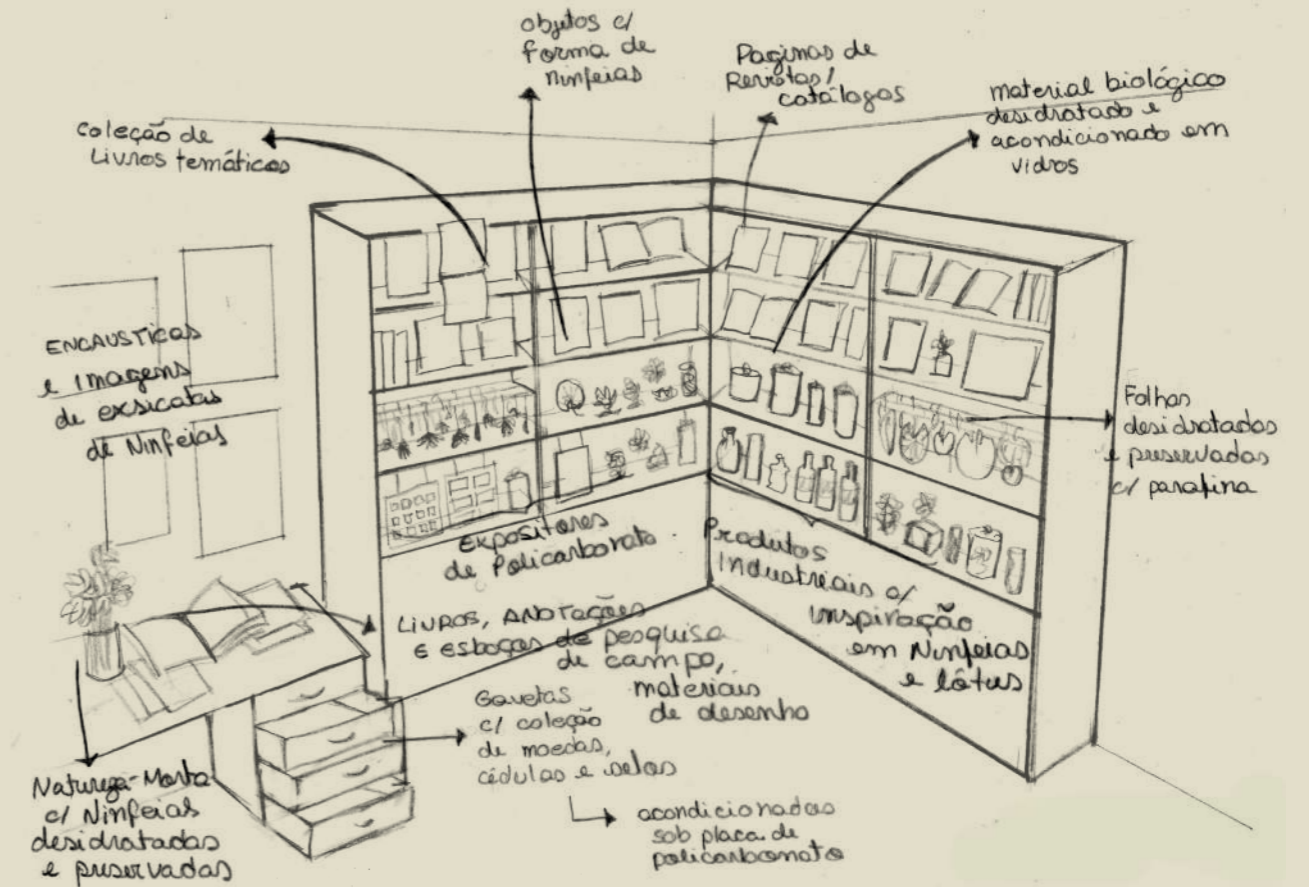 objetos c/
forma de
ninfeias
Paginas de
Revistas/
catálogos
material biológico
desidratado e
acondicionado em
vidros
coleção de
Livros temáticos
ENCAUSTICAS
e imagens
de exsicatas
de Ninfeias
Folhas
desidratadas
e preservadas
c/ parafina
Expositores
de Policarbonato
Produtos
Industriais c/
inspiração
em Ninfeias
e lótus
LIVROS, ANOTAÇÕES
E esboços de pesquisa
de campo,
materiais
de desenho
Gavetas
c/ coleção
de moedas,
cédulas e selos
acondicionadas
sob placa de
policarbonato
Natureza-Morta
c/ Ninfeias
desidratadas
e preservadas